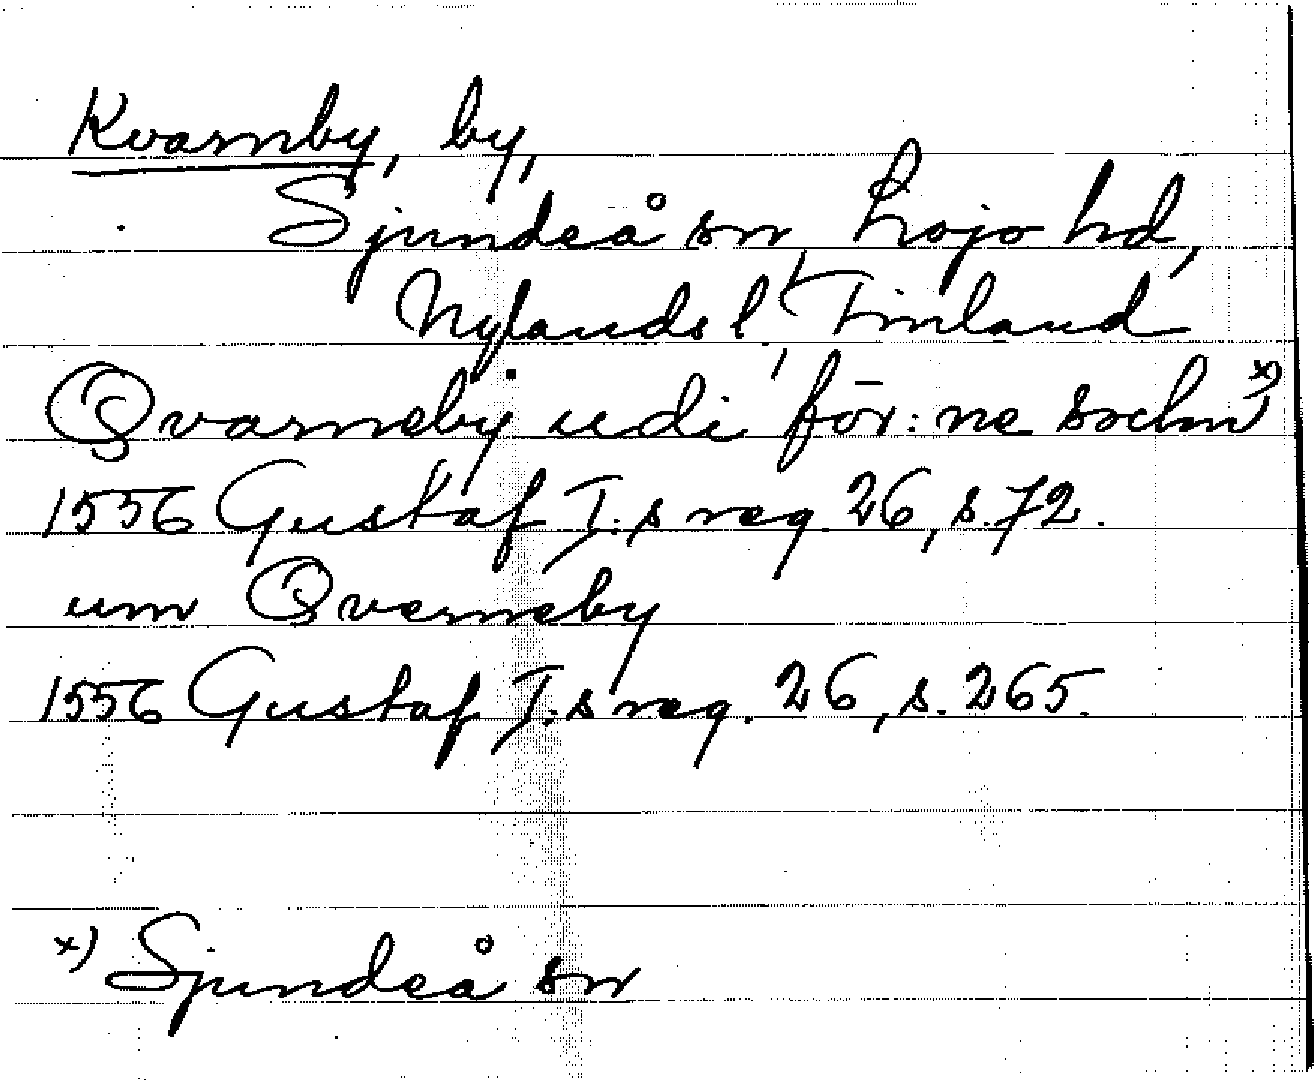 Kvarnby, by,
Sjundeå sn, Lojo hd,
Nylands l, Finland
Qvarneby udi för:ne sochn x)
1556 Gustaf I:s reg. 26, s. 72.
um Qverneby
1556 Gustaf I:s reg. 26, s. 265.
x) Sjundeå sn